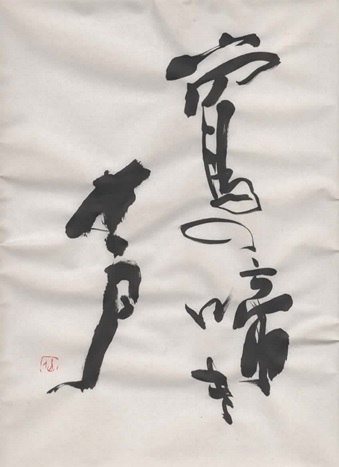 鶯の啼き
声